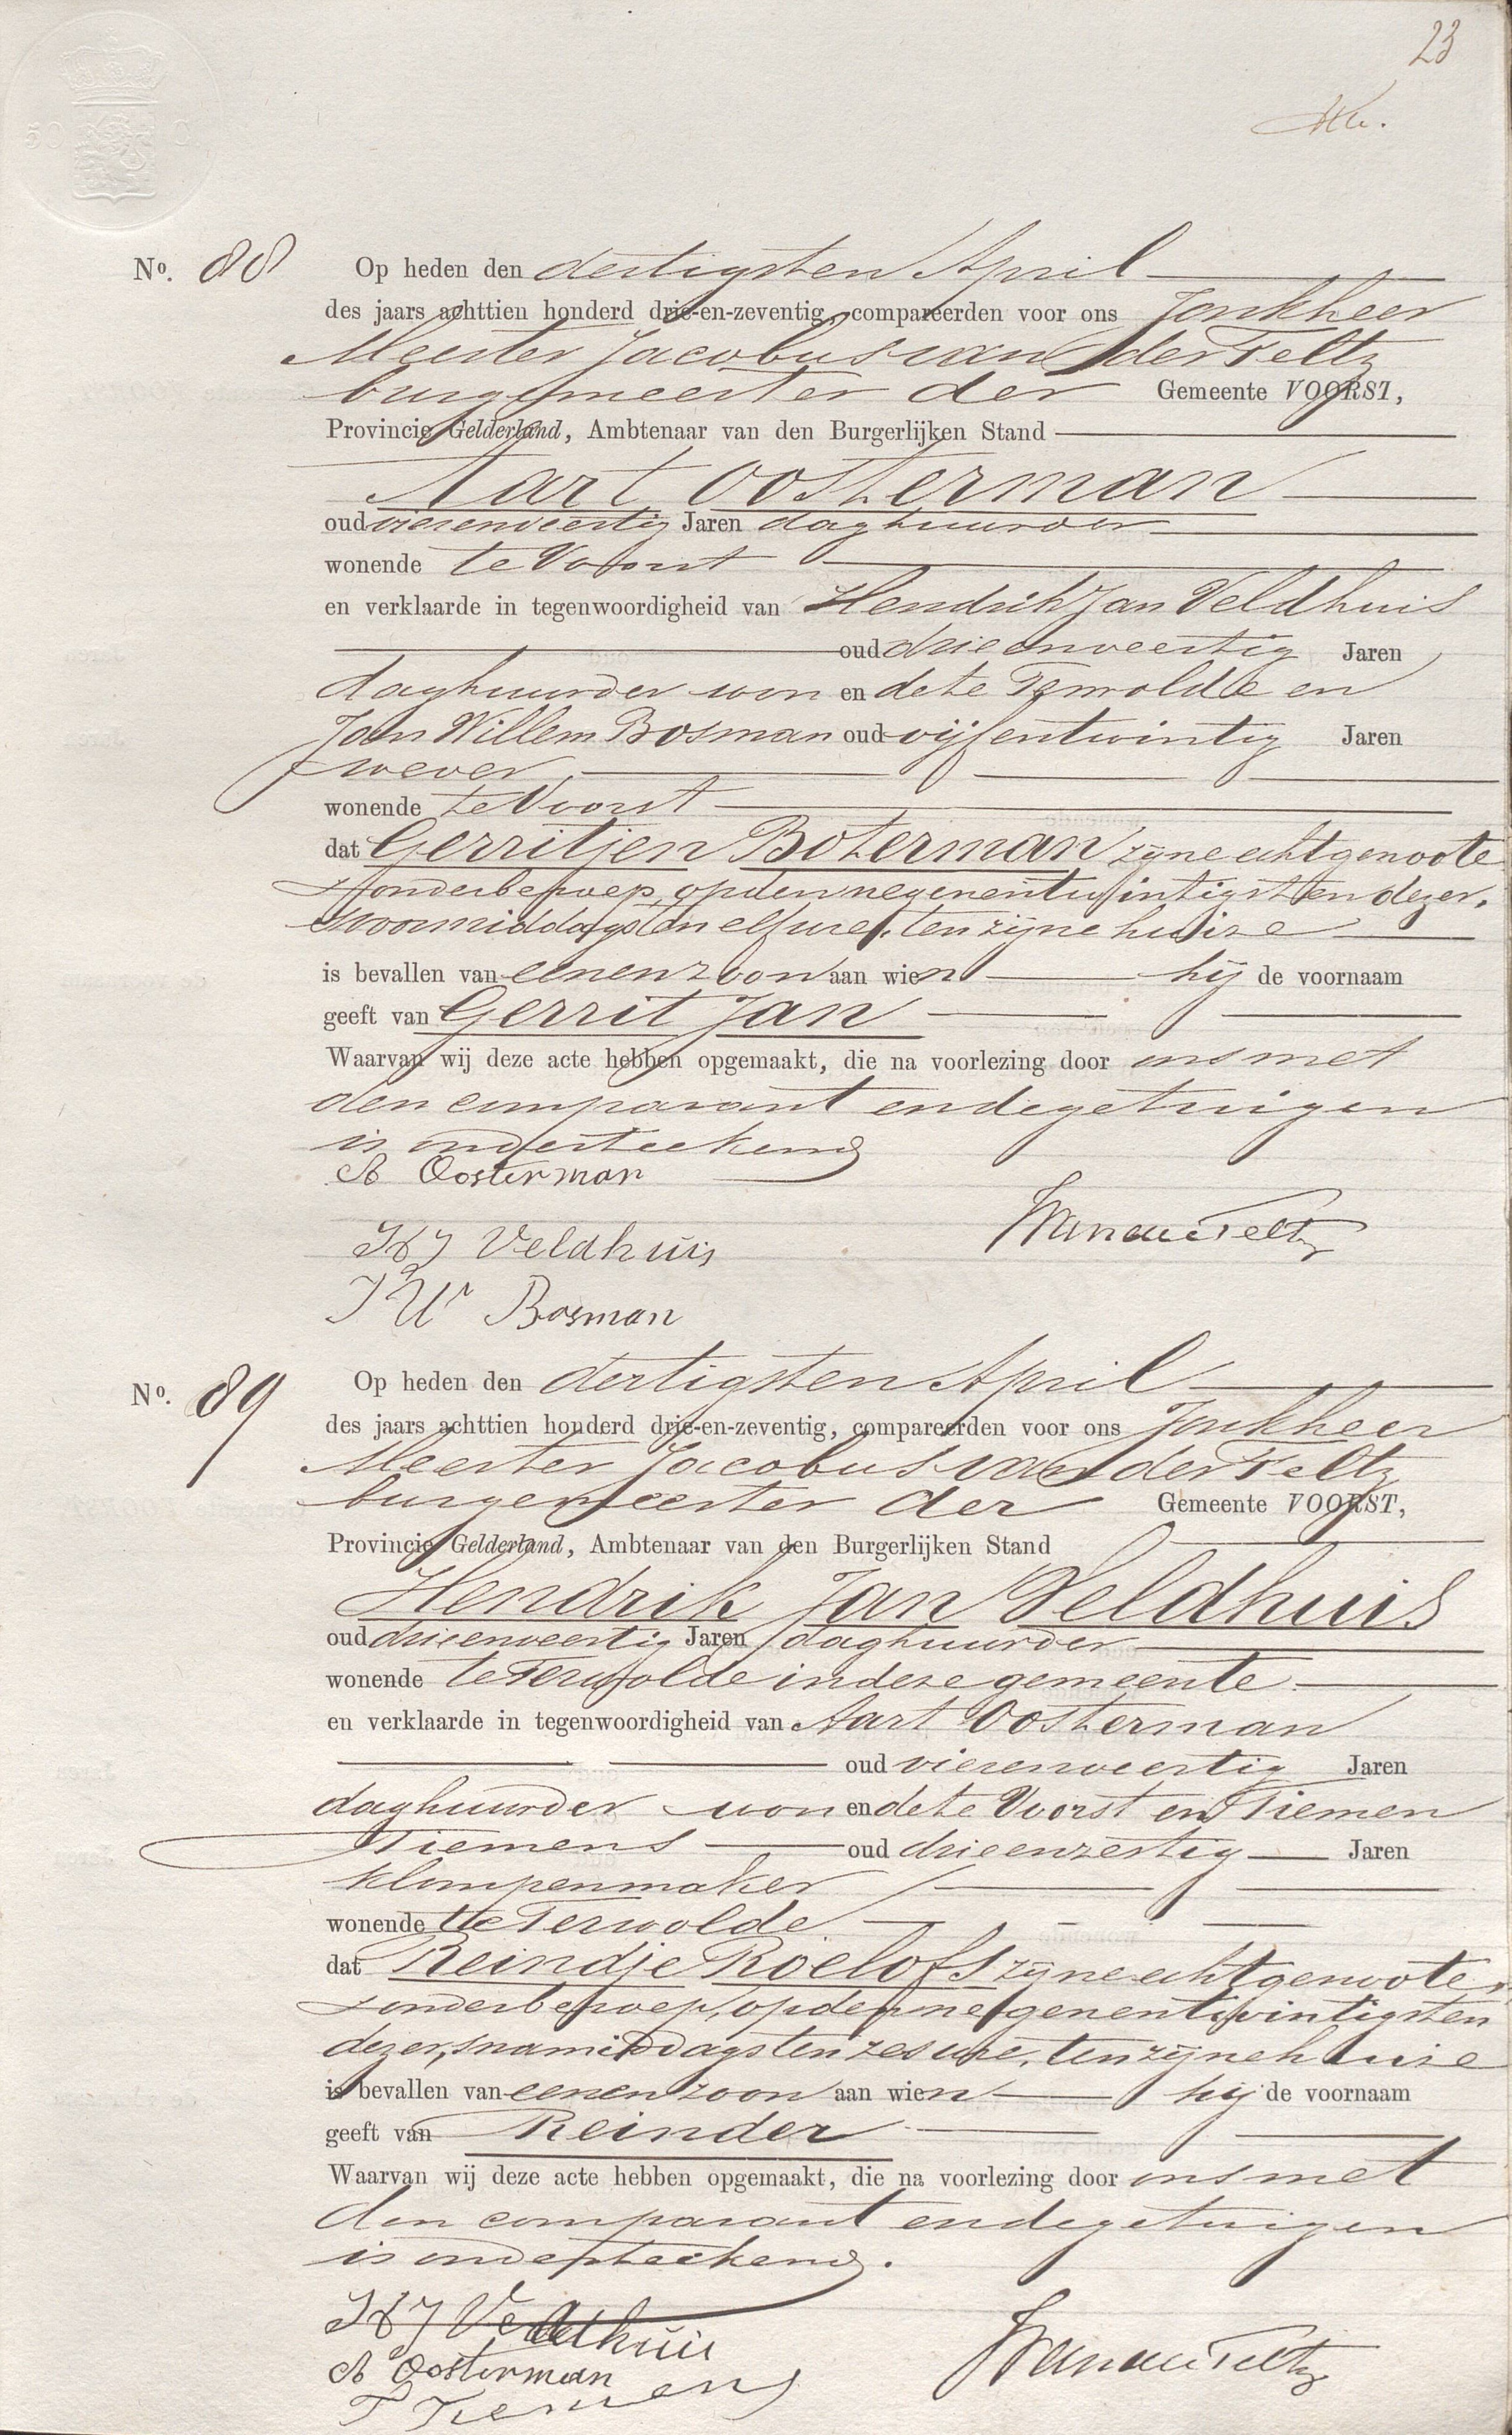 23
50 0
No. 88
Op heden den dertigsten April
des jaars achttien honderd drie-en-zeventig, compareerden voor ons Jonkheer
Meester Jacobus van der Feltz
burgemeester der Gemeente VOORST,
Provincie Gelderland, Ambtenaar van den Burgerlijken Stand
Aart Oosterman
oud vierenveertig Jaren daghuurder
wonende te Voorst
en verklaarde in tegenwoordigheid van Hendrik Jan Veldhuis
oud drieenveertig Jaren
daghuurder won en de te Terwolde en
Jan Willem Bosman oud vijfentwintig Jaren
wever
wonende te Voorst
dat Gerritjen Boterman zijne echtgenoote
zonder beroep, op den negenentwintigsten dezer,
svoormiddags ten elf ure, ten zijne huize
is bevallen van eenen zoon aan wien hij de voornaam
geeft van Gerrit Jan
Waarvan wij deze acte hebben opgemaakt, die na voorlezing door ons met
den comparant en de getuigen
is onderteekend
A Oosterman
HJ Veldhuis
JW Bosman
No. 89
Op heden den dertigsten April
des jaars achttien honderd drie-en-zeventig, compareerden voor ons Jonkheer
Meester Jacobus van der Feltz
burgemeester der Gemeente VOORST,
Provincie Gelderland, Ambtenaar van den Burgerlijken Stand
Hendrik Jan Veldhuis
oud drieenveertig Jaren daghuurder
wonende te Terwolde in deze gemeente
en verklaarde in tegenwoordigheid van Aart Oosterman
oud vierenveertig Jaren
daghuurder won en de te Voorst en Tiemen
Tiemens oud drieenzestig Jaren
klompenmaker
wonende te Terwolde
dat Reindje Roelofs zijne echtgenoote,
zonder beroep, op den negenentwintigsten
dezer, snamiddags ten zes ure, ten zijne huize
is bevallen van eenen zoon aan wien hij de voornaam
geeft van Reinder
Waarvan wij deze acte hebben opgemaakt, die na voorlezing door ons met
den comparant en de getuigen
is onderteekend.
HJ Veldhuis
A Oosterman
T Tiemens